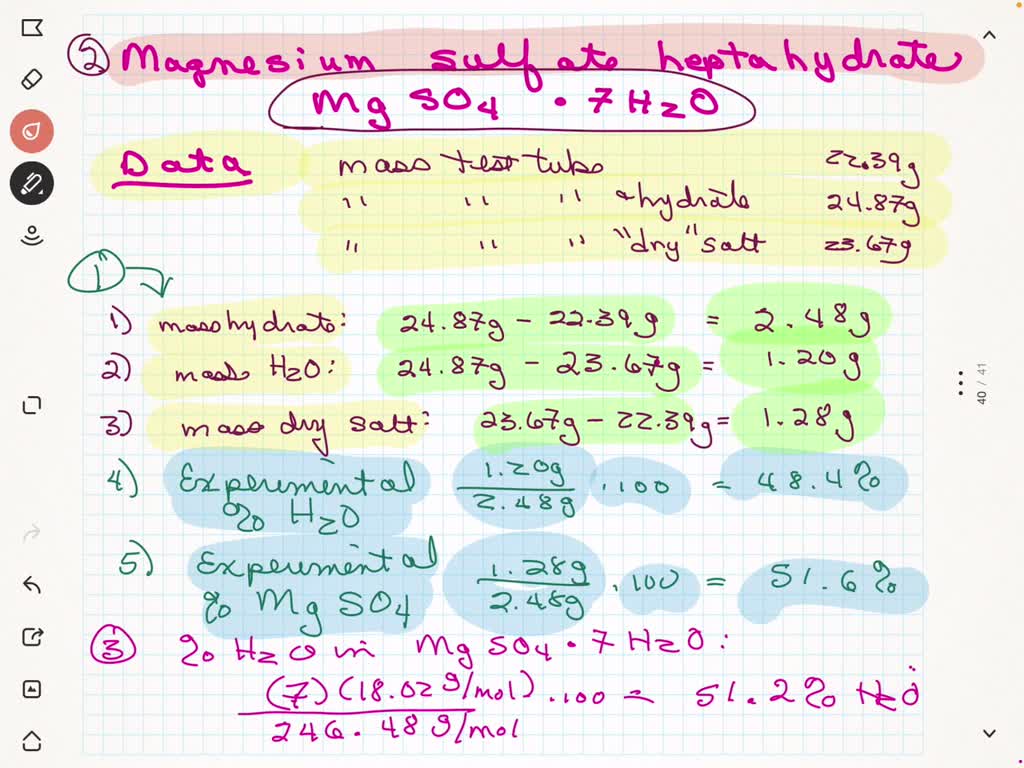 ② Magnesium sulfate heptahydrate
MgSO4 · 7H2O
Data mass test tube 22.39g
" " " + hydrate 24.87g
" " " "dry" salt 23.67g
①
1) mass hydrate: 24.87g - 22.39g = 2.48g
2) mass H2O: 24.87g - 23.67g = 1.20g
3) mass dry salt: 23.67g - 22.39g = 1.28g
4) Experimental 1.20g/2.48g · 100 = 48.4%
% H2O
5) Experimental 1.28g/2.48g · 100 = 51.6%
% MgSO4
③ % H2O in MgSO4 · 7H2O:
(7)(18.02g/mol) · 100 = 51.2% H2O
246.48g/mol
40 / 41